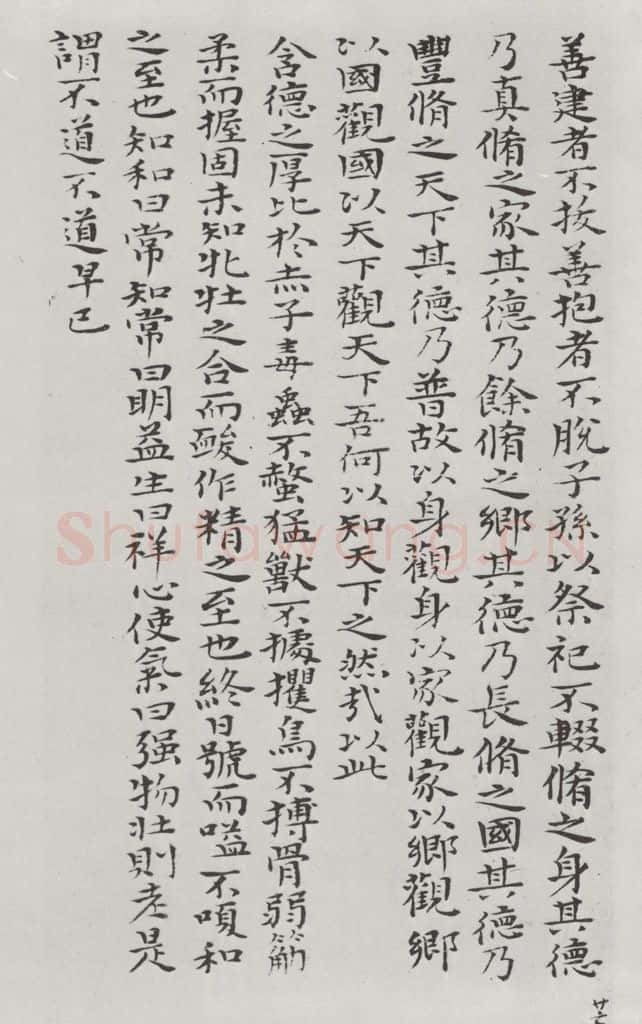 善建者不拔善抱者不脫子孫以祭祀不輟脩之身其德
乃真脩之家其德乃餘脩之鄉其德乃長脩之國其德乃
豐脩之天下其德乃普故以身觀身以家觀家以鄉觀鄉
以國觀國以天下觀天下吾何以知天下之然哉以此
含德之厚比於赤子毒蟲不螫猛獸不據攫鳥不搏骨弱筋
柔而握固未知牝牡之合而酸作精之至也終日號而嗌不嗄和
之至也知和曰常知常曰明益生曰祥心使氣曰强物壯則老是
謂不道不道早已
Shufawang.CN